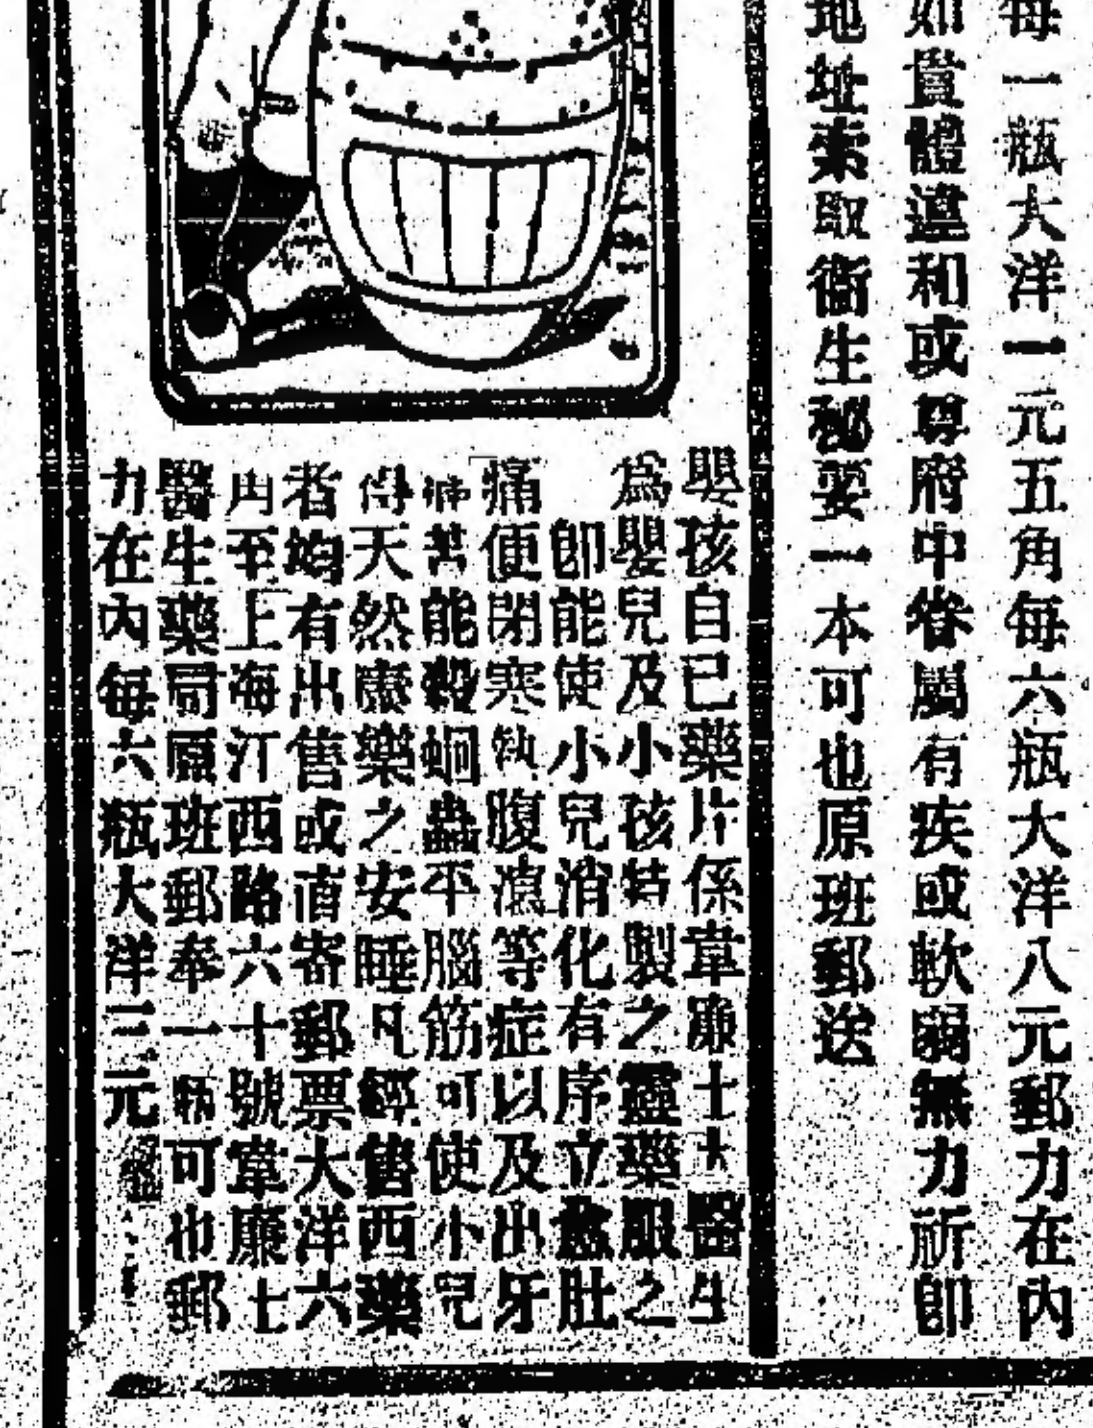 每一瓶大洋一元五角每六瓶大洋八元郵力在內
如貴體違和或尊府中眷屬有疾或軟弱無力祈即
地址索取衞生秘要一本可也原班郵送
嬰孩自己藥片係韋廉士大醫生
爲嬰兒及小孩特製之靈藥服之
卽能使小兒消化有序立愈肚
痛便閉寒熱腹瀉等症以及出牙
苦能殺蛔蟲平腦筋可使小兒
得天然康樂之安睡凡經售西藥
者均有出售或直寄郵票大洋六
角至上海江西路六十號韋廉士
醫生藥局原班郵奉一瓶可也郵
力在內每六瓶大洋三元